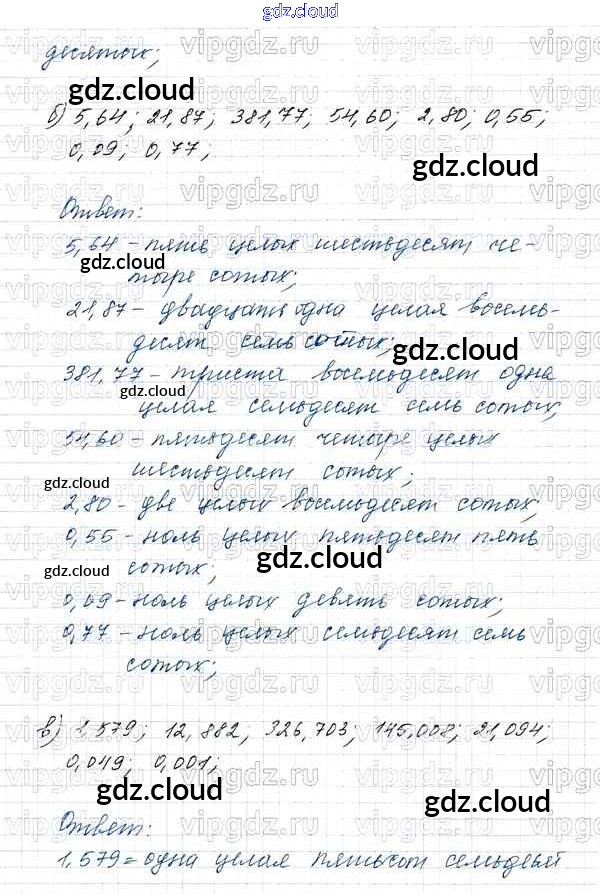 gdz.cloud
десятых;
gdz.cloud
б) 5,64; 21,87; 381,77; 54,60; 2,80; 0,55;
0,09; 0,77;
gdz.cloud
Ответ:
5,64 - пять целых шестьдесят че-
gdz.cloud
тыре сотых;
21,87 - двадцать одна целая восемь-
десят семь сотых;
gdz.cloud
381,77 - триста восемьдесят одна
gdz.cloud
целая семьдесят семь сотых;
54,60 - пятьдесят четыре целых
шестьдесят сотых;
gdz.cloud
2,80 - две целых восемьдесят сотых;
0,55 - ноль целых пятьдесят пять
gdz.cloud
gdz.cloud
сотых;
0,09 - ноль целых девять сотых;
0,77 - ноль целых семьдесят семь
сотых;
в) 1,579; 12,882, 326,703; 145,008; 21,094;
0,049; 0,001;
gdz.cloud
gdz.cloud
Ответ:
1,579 = одна целая пятьсот семьдеят